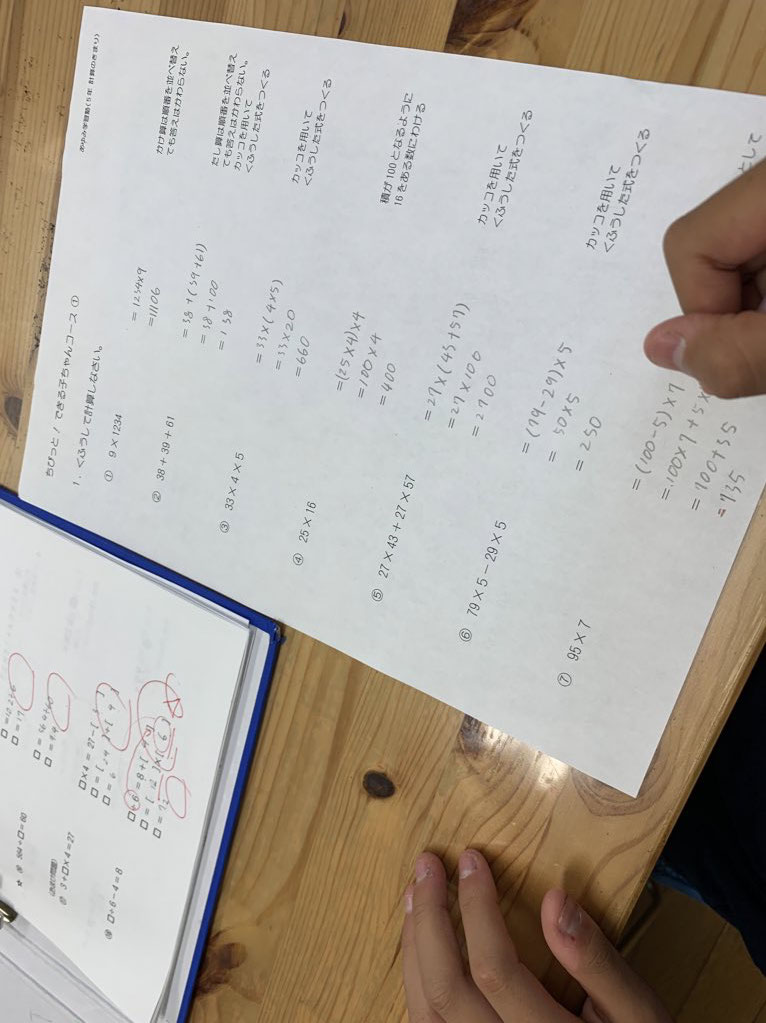 あゆみ学習塾(5年 計算のきまり)
ちびっと！できる子ちゃんコース ①
1. くふうして計算しなさい。
① 9×1234
=1234×9
=11106
かけ算は順番を並べ替え
ても答えはかわらない。
② 38+39+61
=38+(39+61)
=38+100
=138
たし算は順番を並べ替え
ても答えはかわらない。
カッコを用いて
くふうした式をつくる
③ 33×4×5
=33×(4×5)
=33×20
=660
カッコを用いて
くふうした式をつくる
④ 25×16
=(25×4)×4
=100×4
=400
積が100となるように
16をある数にわける
⑤ 27×43+27×57
=27×(43+57)
=27×100
=2700
カッコを用いて
くふうした式をつくる
⑥ 79×5−29×5
=(79-29)×5
= 50×5
= 250
カッコを用いて
くふうした式をつくる
⑦ 95×7
=(100-5)×7
=100×7+5×
=700+35
=735
として
□×4=27-[
□÷6-4=8
3+□×4=27